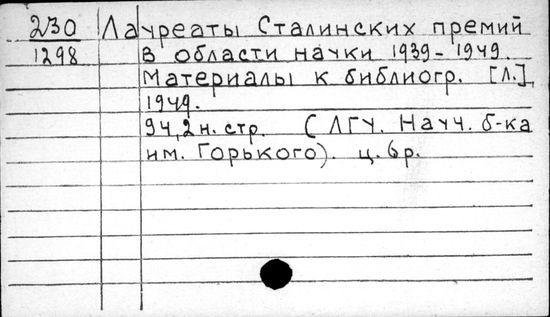 230 Лауреаты Сталинских премий
1298 в области науки 1939-1949.
Материалы к библиогр. [Л.],
1949.
94,2 н. стр. (ЛГУ. Науч. б-ка
им. Горького). ц. 6 р.